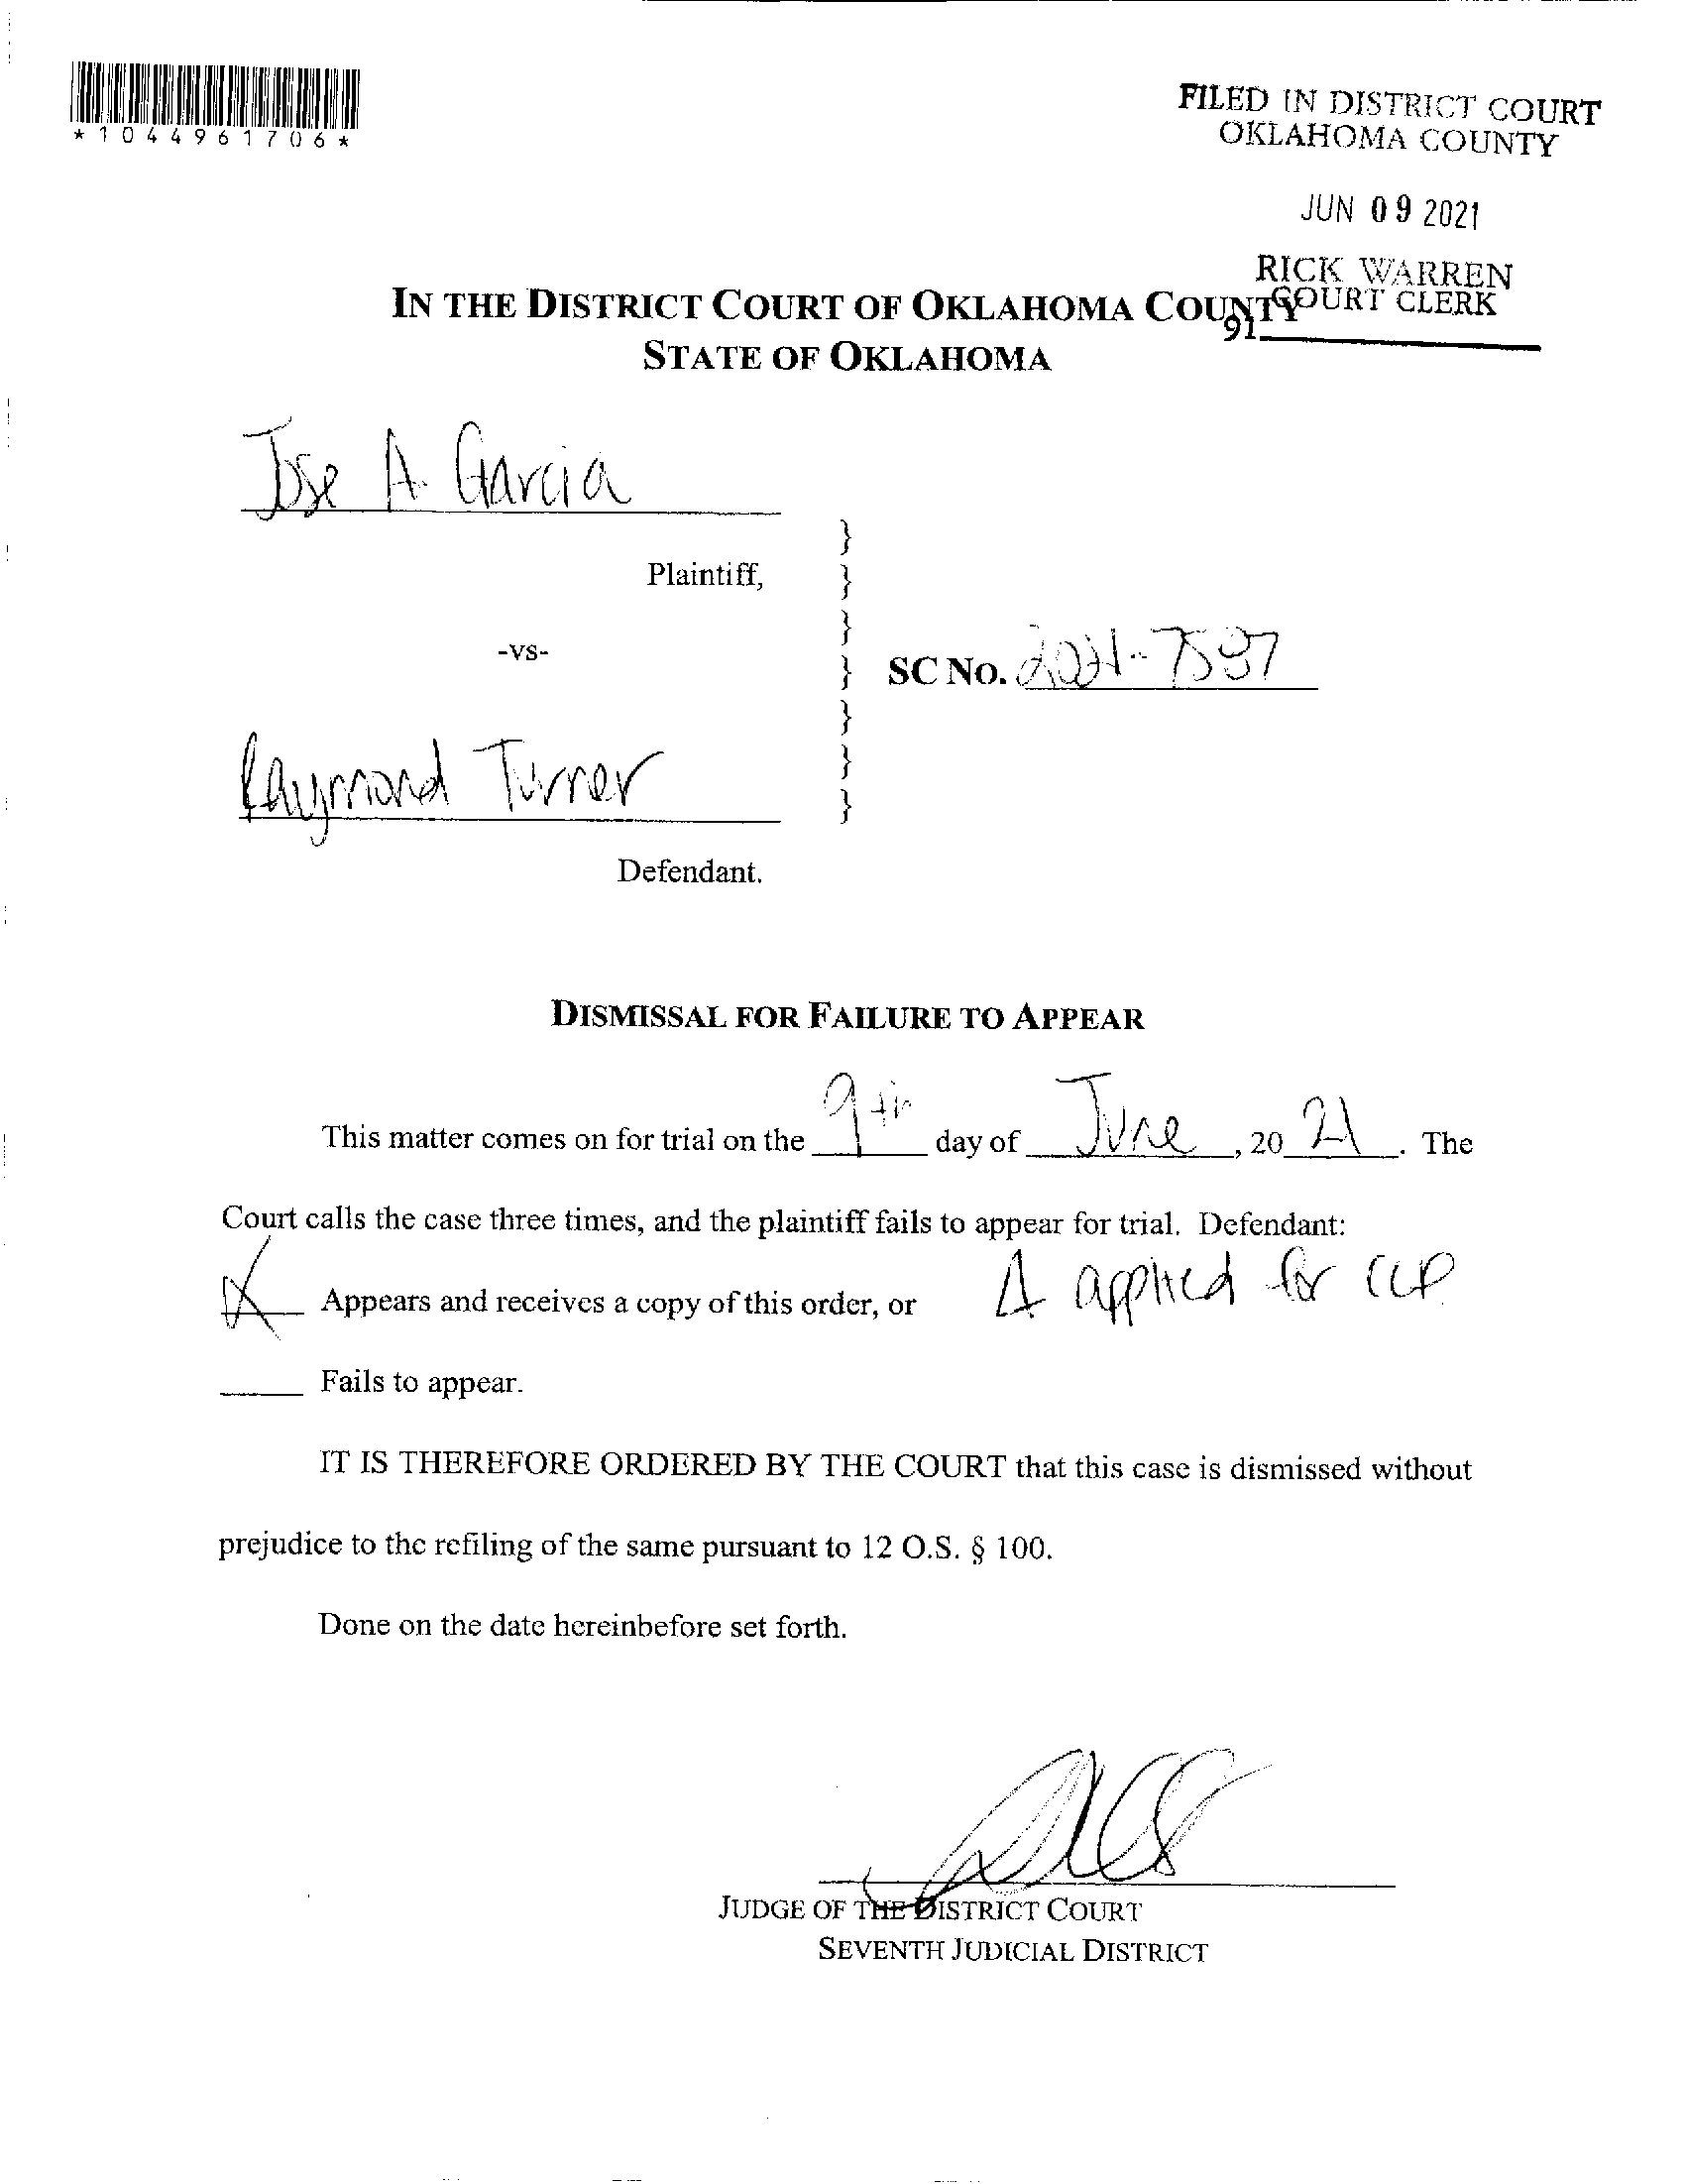 *1044961706*
FILED IN DISTRICT COURT
OKLAHOMA COUNTY
JUN 09 2021
RICK WARREN
COURT CLERK
91
IN THE DISTRICT COURT OF OKLAHOMA COUNTY
STATE OF OKLAHOMA
Jose A Garcia
Plaintiff,
-vs-
SC NO. 2021-7587
Raymond Turner
Defendant.
DISMISSAL FOR FAILURE TO APPEAR
This matter comes on for trial on the 9th day of June, 2021. The
Court calls the case three times, and the plaintiff fails to appear for trial. Defendant:
X Appears and receives a copy of this order, or
Δ applied for
Fails to appear.
IT IS THEREFORE ORDERED BY THE COURT that this case is dismissed without
prejudice to the refiling of the same pursuant to 12 O.S. § 100.
Done on the date hereinbefore set forth.
JUDGE OF THE DISTRICT COURT
SEVENTH JUDICIAL DISTRICT